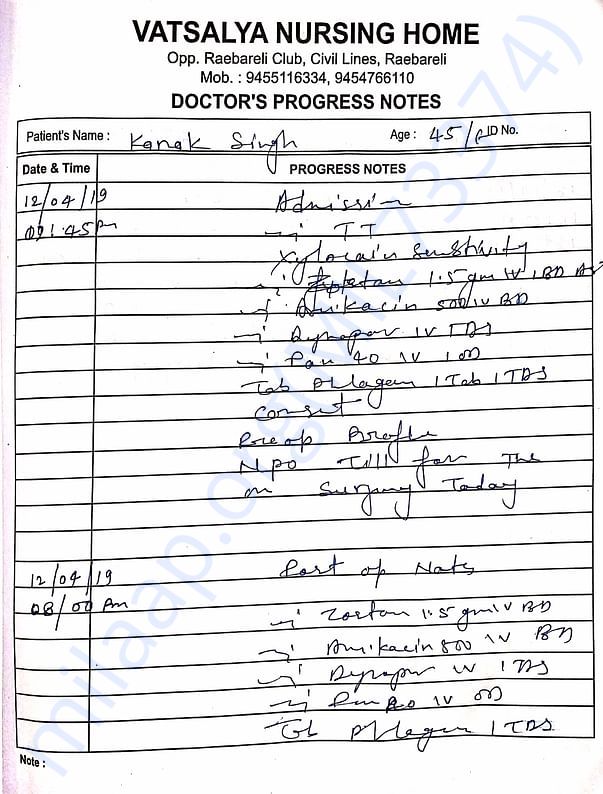 VATSALYA NURSING HOME
Opp. Raebareli Club, Civil Lines, Raebareli
Mob. : 9455116334, 9454766110
DOCTOR'S PROGRESS NOTES
Patient's Name : Kanak Singh Age : 45/ ID No.
Date & Time PROGRESS NOTES
12/04/19 Admission
45 Pm TT
Xylocain Sensitivity
1.5 gm IV BD
Amikacin 500 IV BD
Dynapar IV TDS
Pan 40 IV OD
Tab 1 Tab TDS
Consent
Pre op Profile
NPO Till for the
on Surgery Today
12/04/19 Post op Notes
08/00 Pm 1.5 gm IV BD
Amikacin 500 IV BD
Dynapar IV TDS
Pan 40 IV OD
1 TDS
Note :